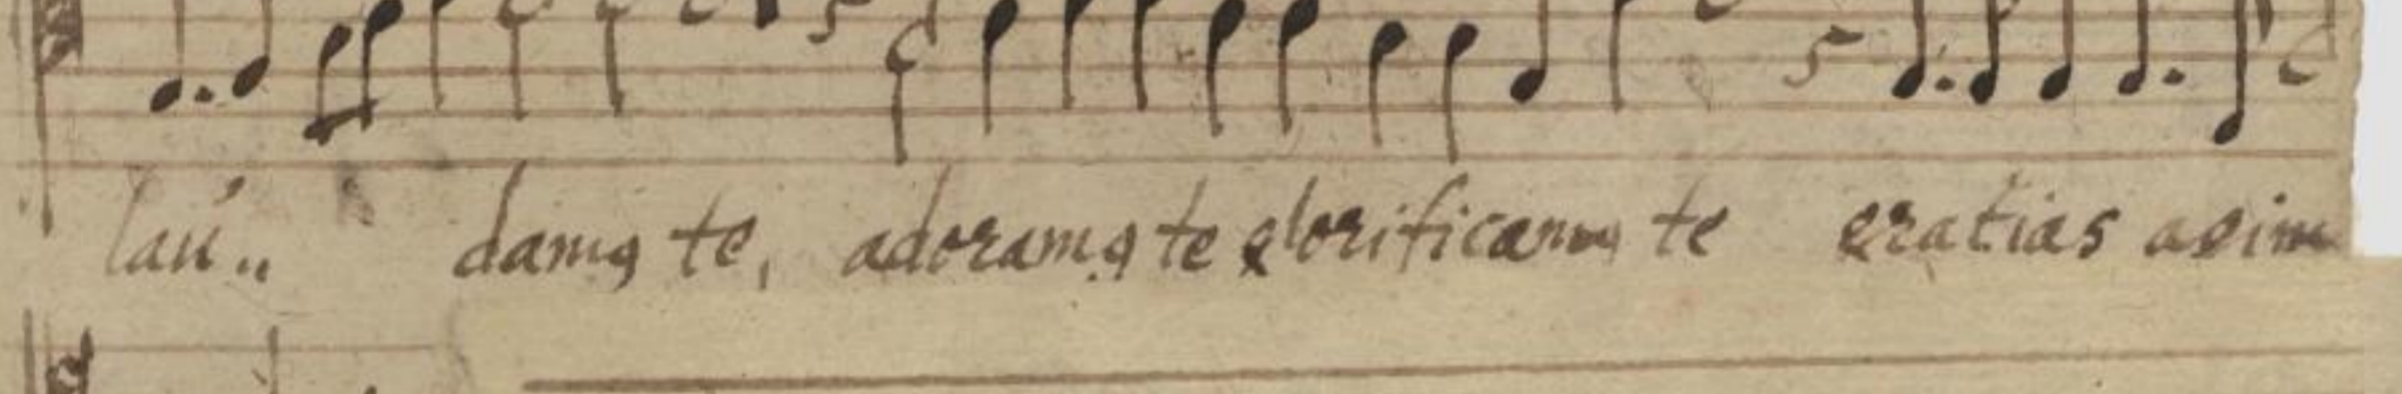 laú.. damꝰ te, adoramꝰ te glorificamꝰ te gratias agim